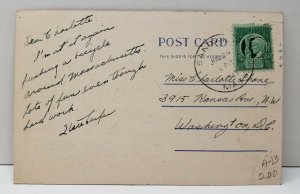 Dear Charlotte
I'm at it again
pushing a bicycle
around Massachusetts
Lots of fun even though
hard work
POST CARD
THIS SIDE IS FOR THE ADDRESS
Miss Charlotte
3915 Kansas Ave, N.W.
Washington, D.C.
200